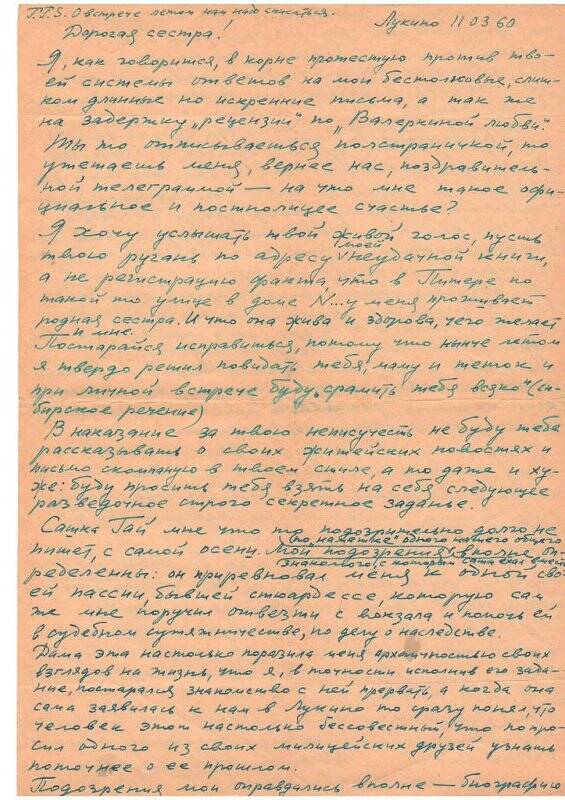 P.P.S. О встрече летом нам надо списаться.
Лукино 11 03 60
Дорогая сестра!
Я, как говорится, в корне протестую против тво-
ей системы ответов на мои бестолковые, слиш-
ком длинные но искренние письма, а так же
на задержку „рецензии" по „Валеркиной любви".
Ты то отписываешься полстраничкой, то
утешаешь меня, вернее нас, поздравитель-
ной телеграммой — на что мне такое офи-
циальное и постнолицее счастье?
Я хочу услышать твой живой голос, пусть
моей
твою ругань по адресу V неудачной книги,
а не регистрацию факта, что в Питере по
такой то улице в доме N... у меня проживает
родная сестра. И что она жива и здорова, чего желает
и мне.
Постарайся исправиться, потому что нынче летом
я твердо решил повидать тебя, маму и теток и
при личной встрече буду „срамить тебя всяко" (си-
бирское речение)
В наказание за твою неписучесть не буду тебе
рассказывать о своих житейских новостях и
письмо скомпаную в твоем стиле, а то даже и ху-
же: буду просить тебя взять на себя следующее
разведочное строго секретное заданье.
Сашка Гай мне что то подозрительно долго не
пишет, с самой осени. Мои подозрения V вполне оп-
(по „наметке" одного нашего общего
знакомого, с которым
ределенны: он приревновал меня к одной сво-
ей пассии, бывшей стюардессе, которую сам
же мне поручил отвезти с вокзала и помочь ей
в судебном сутяжничестве, по делу о наследстве.
Дама эта настолько поразила меня
взглядов на жизнь, что я, в точности исполнив его зада-
ние, постарался знакомство с ней прервать, а когда она
сама заявилась к нам в Лукино то сразу понял, что
человек этот настолько бессовестный, что попро-
сил одного из своих милицейских друзей узнать
поточнее о ее прошлом.
Подозрения мои оправдались вполне — биографию